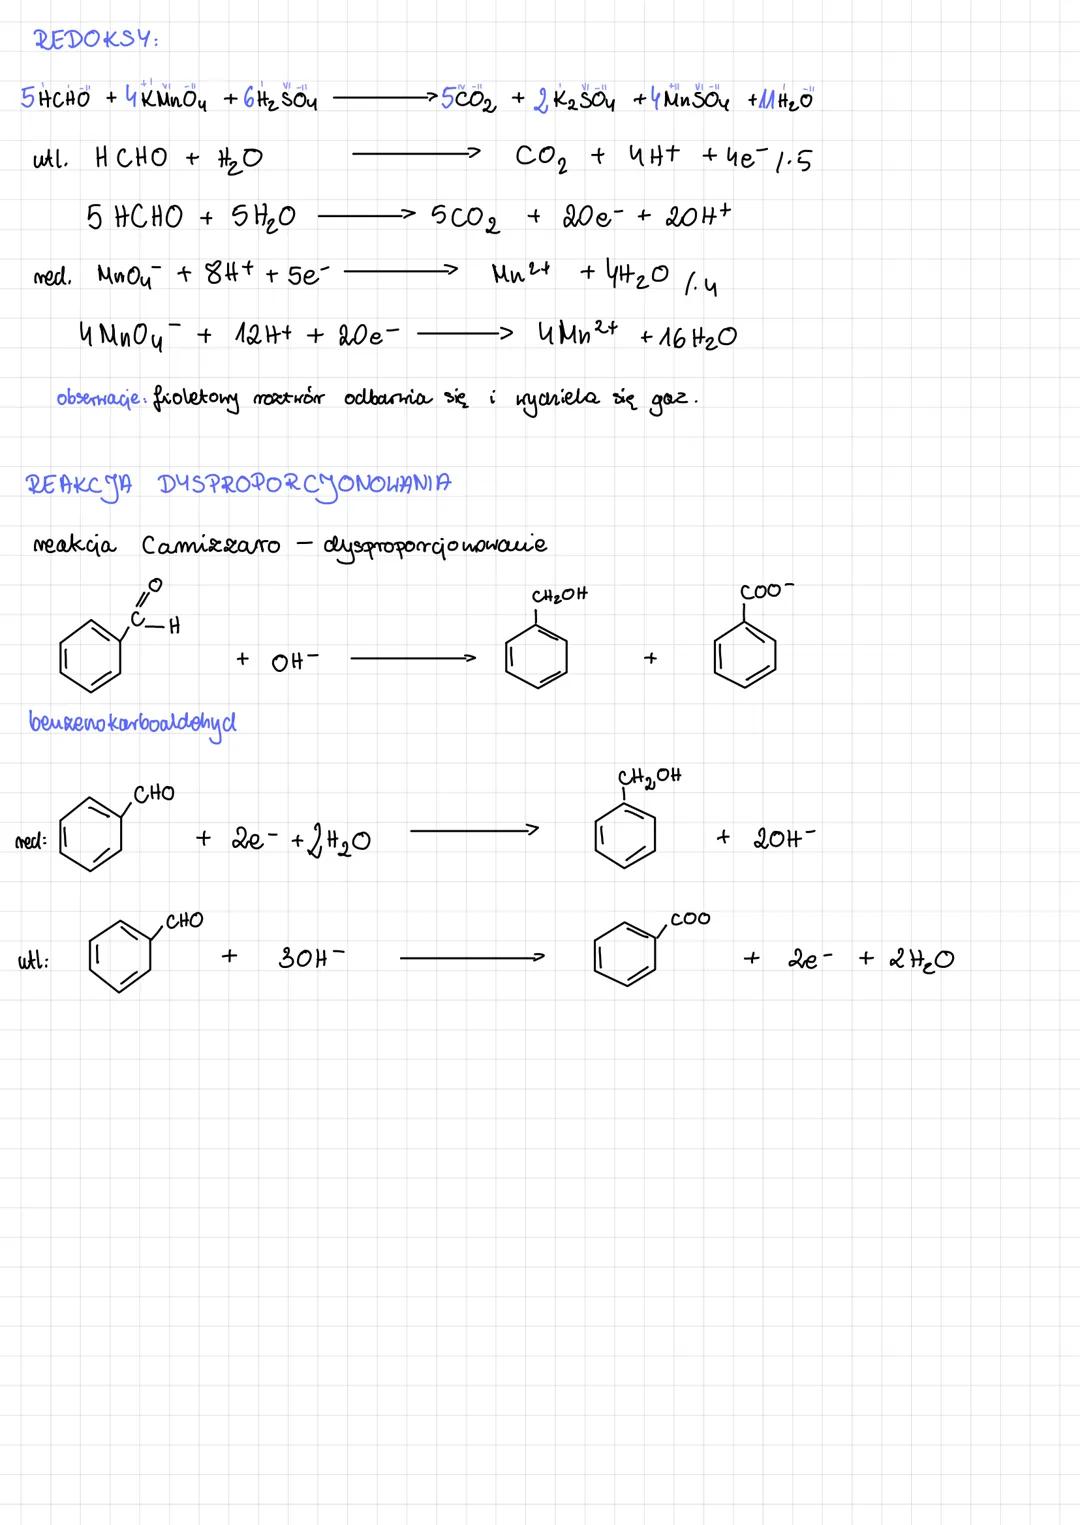 REDOKSY:
5HCHO + 4KMnO₄ + 6H₂SO₄ → 5CO₂ + 2K₂SO₄ + 4MnSO₄ + 11H₂O
utl. HCHO + H₂O → CO₂ + 4H+ + 4e⁻ /·5
5 HCHO + 5H₂O → 5CO₂ + 20e⁻ + 20H+
red. MnO₄⁻ + 8H+ + 5e⁻ → Mn²⁺ + 4H₂O /·4
4MnO₄⁻ + 12H+ + 20e⁻ → 4Mn²⁺ + 16H₂O
obserwacje: fioletowy roztwór odbarwia się i wydziela się gaz.
REAKCJA DYSPROPORCJONOWANIA
reakcja Camizzaro – dysproporcjonowanie
O
C–H
CH₂OH
COO⁻
+ OH⁻ → +
benzenokarboaldehyd
CHO
CH₂OH
red: + 2e⁻ + 2H₂O → + 2OH⁻
CHO
COO
utl: + 3OH⁻ → + 2e⁻ + 2H₂O